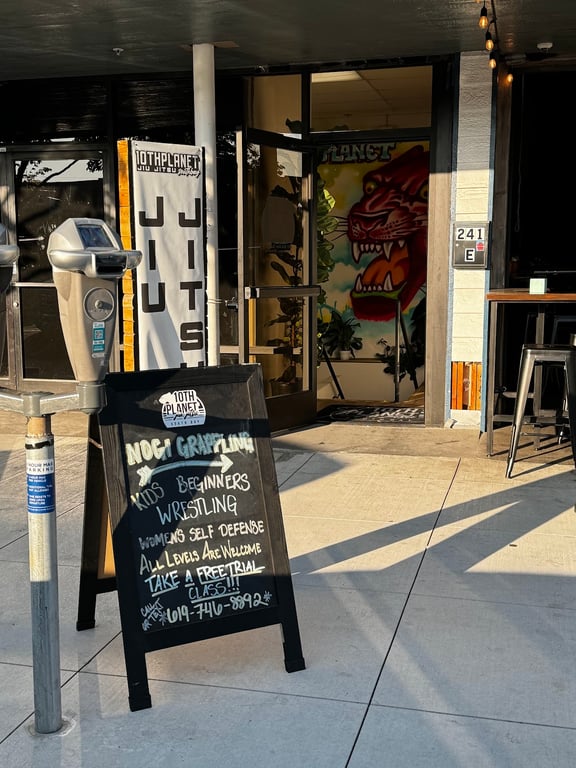 10THPLANET
JIU JITSU
JIU
JITS
PLANET
241
E
10TH
PLANET
NOGI GRAPPLING
KIDS BEGINNERS
WRESTLING
WOMENS SELF DEFENSE
ALL LEVELS ARE WELCOME
TAKE A FREE TRIAL
CLASS!!!
CALL OR TEXT
619-746-8892
HOUR MAX
PARKING